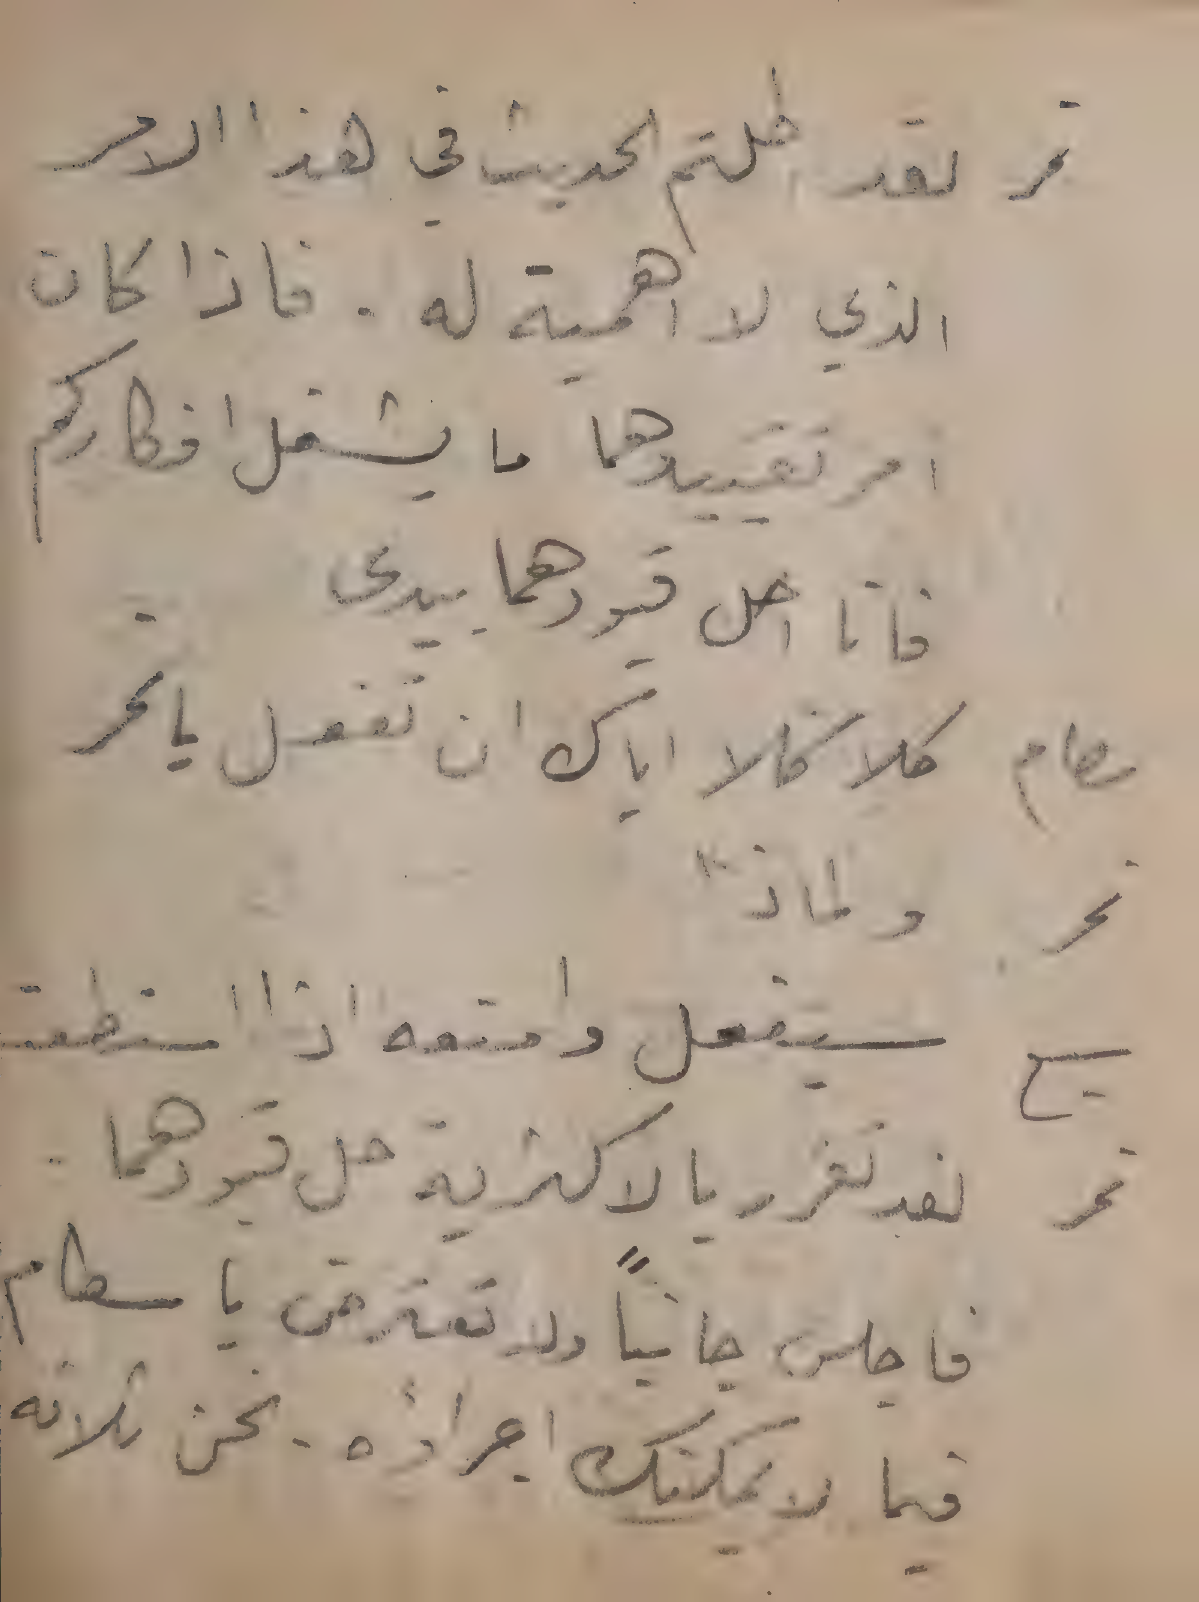 نمر لقد اطلتم الحديث في هذا الامر
الذي لا اهمية له . فاذا كان
امر تقييدهما ما يشغل افكاركم
فانا احل قيودهما بيدي
سطام كلا كلا اياك ان تفعل يا نمر
نمر ولماذا
سيفعل وامنعه اذا استطعت
نمر لقد تقرر بالاكثرية حل قيودهما .
فاجلس جانباً ولا تعترض يا سطام
فيما لا يمكنك اجراؤه . نحن ثلاثه